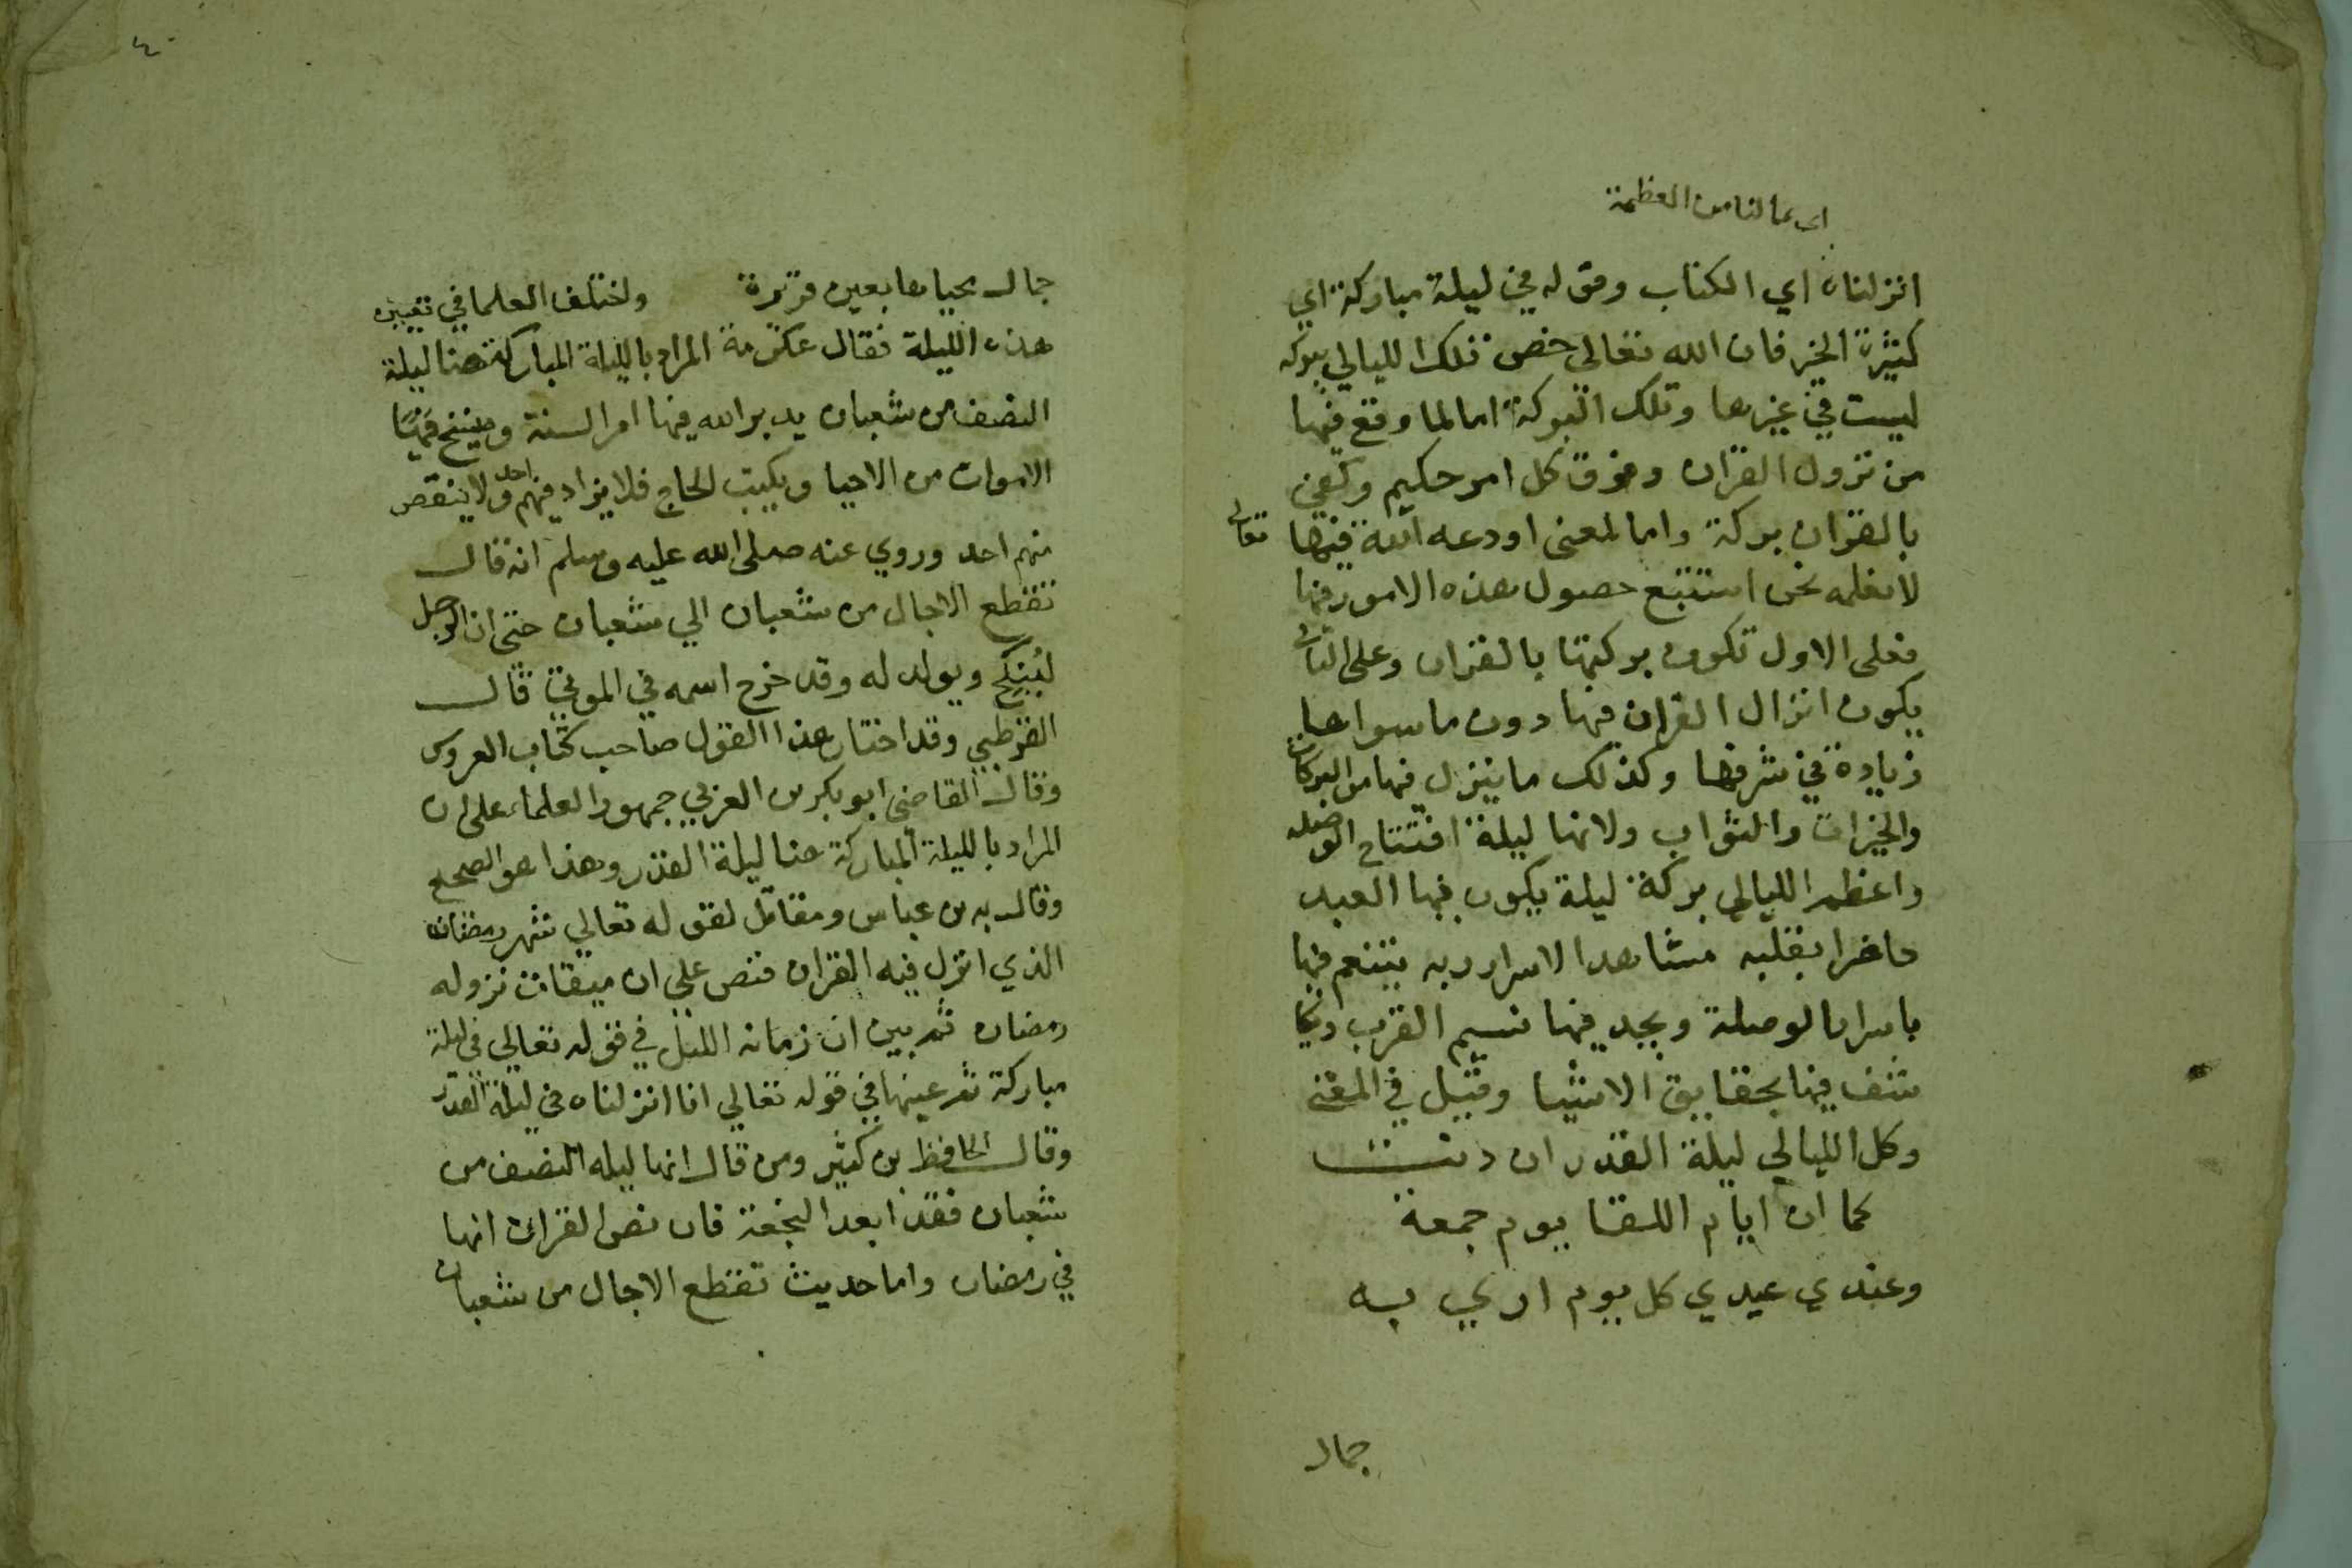 اي بما لنا من العظمة
انزلناه اي الكتاب وقوله في ليلة مباركة اي
كثيرة الخير فان الله تعالى خص تلك الليالي ببركه
ليست في غيرها وتلك البركة اما لما وقع فيها
من نزول القران وفرق كل امر حكيم وكفى
بالقران بركة واما لمعنى اودعه الله تعالى فيها
لا نعلمه نحن استتبع حصول هذه الامور فيها
فعلى الاول تكون بركتها بالقران وعلى الثاني
يكون انزال القران فيها دون ما سواها
زيادة في شرفها وكذلك ما ينزل فيها من البركات
والخيرات والثواب ولانها ليلة افتتاح الوصله
واعظم الليالي بركة ليلة يكون فيها العبد
حاضرا بقلبه مشاهدا لاسرار ربه يتنعم فيها
باسرار الوصلة ويجد فيها نسيم القرب ويكا
شف فيها بحقايق الاشيا وقيل في المعنى
وكل الليالي ليلة القدر ان دنت
كما ان ايام اللقا يوم جمعة
وعندي عيدي كل يوم اري به
جمال
٤٠
جمال محياها بعين قريرة واختلف العلما في تعيين
هذه الليلة فقال عكرمة المراد بالليلة المباركة هنا ليلة
النصف من شعبان يدبر الله فيها امر السنة وينسخ فيها
الاموات من الاحيا ويكتب الحاج فلا يزاد فيهم احد ولا ينقص
منهم احد وروي عنه صلى الله عليه وسلم انه قال
تقطع الاجال من شعبان الي شعبان حتى ان الرجل
لينكح ويولد له وقد خرج اسمه في الموتى قال
القرطبي وقد اختار هذا القول صاحب كتاب العروس
وقال القاضي ابو بكر بن العربي جمهور العلماء على ان
المراد بالليلة المباركة هنا ليلة القدر وهذا هو الصحيح
وقال به بن عباس ومقاتل لقوله تعالي شهر رمضان
الذي انزل فيه القران فنص على ان ميقات نزوله
رمضان ثم بين ان زمانه الليل في قوله تعالي في ليلة
مباركة ثم عينها في قوله تعالي انا انزلناه في ليلة القدر
وقال الحافظ بن كثير ومن قال انها ليله النصف من
شعبان فقد ابعد النجعة فان نص القران انها
في رمضان واما حديث تقطع الاجال من شعبان